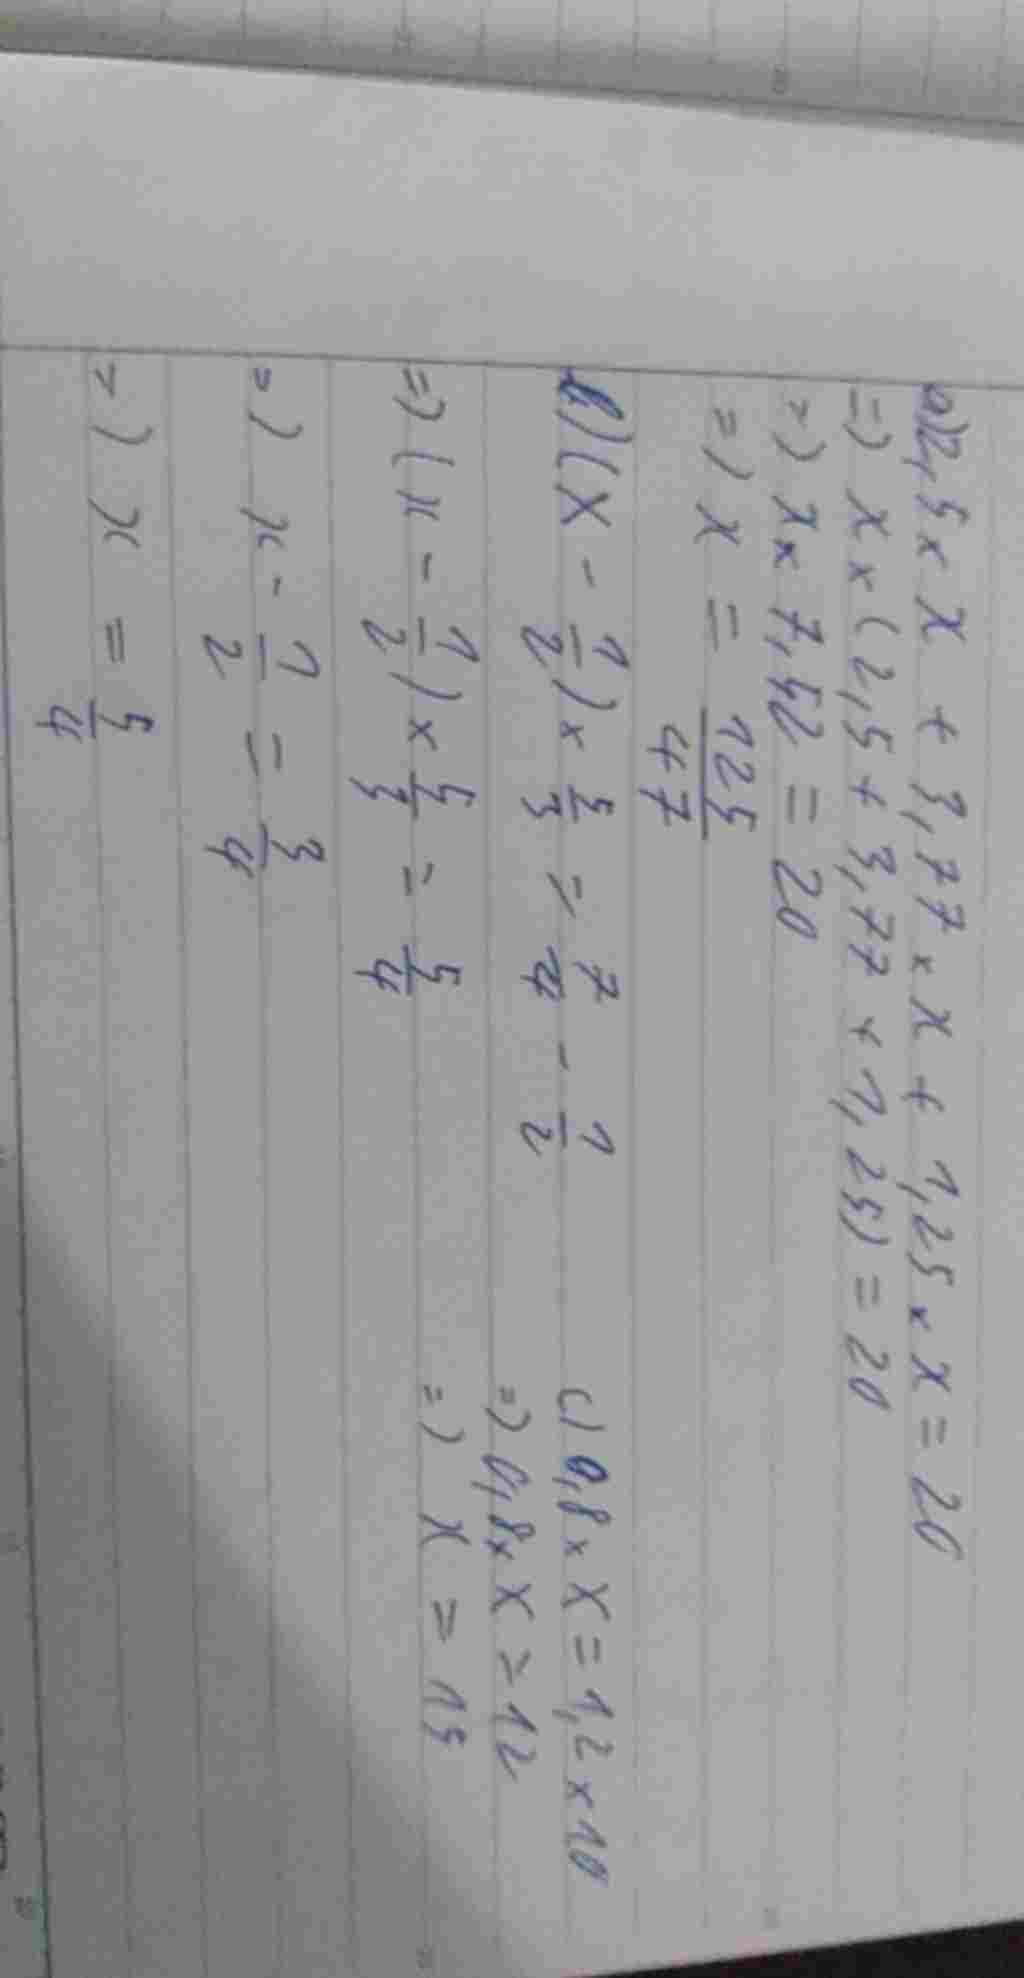 a) 2,5 x X + 3,77 x X + 1,25 x X = 20
=) X x (2,5 + 3,77 + 1,25) = 20
=) X x 7,52 = 20
=) X = 125/47
b) (X - 1/2) x 5/3 = 7/4 - 1/2
=) (x - 1/2) x 5/3 = 5/4
=) x - 1/2 = 3/4
=) x = 5/4
c) 0,8 x X = 1,2 x 10
=) 0,8 x X = 12
=) X = 15